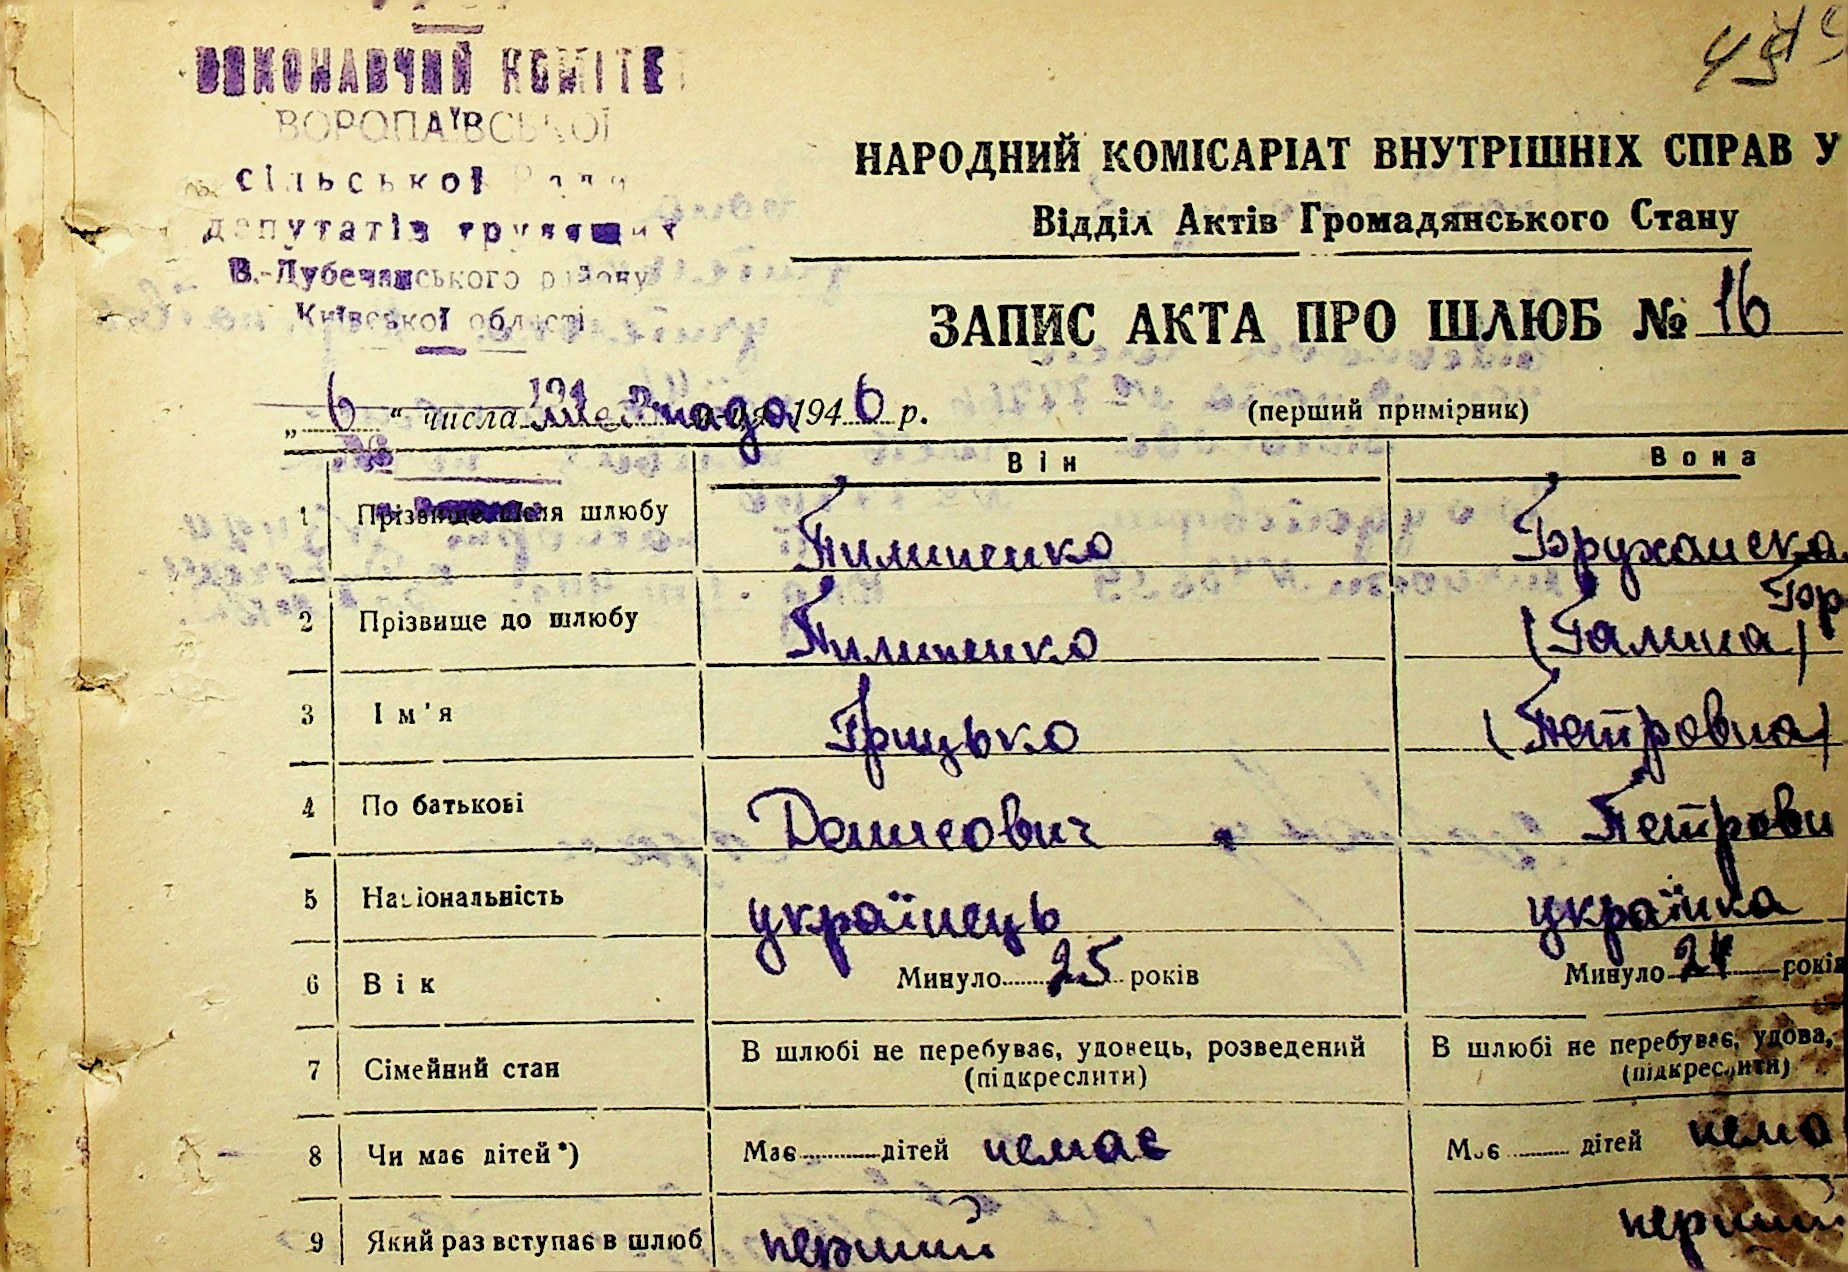 ВИКОНАВЧИЙ КОМІТЕТ
ВОРОПАЇВСЬКОЇ
сільської Ради
депутатів трудящих
В.-Дубечанського району
Київської області
НАРОДНИЙ КОМІСАРІАТ ВНУТРІШНІХ СПРАВ У
Відділ Актів Громадянського Стану
ЗАПИС АКТА ПРО ШЛЮБ № 16
„ 6 “ числа м-ця 1946 р.
(перший примірник)
Він Вона
1 Прізвище після шлюбу Пилипенко Бруханська
2 Прізвище до шлюбу Пилипенко (Галина) Бр
3 Ім'я Грицько (Петровна)
4 По батькові Денисович Петрови
5 Національність українець українка
6 Вік Минуло 25 років Минуло 24 років
7 Сімейний стан В шлюбі не перебуває, удовець, розведений (підкреслити) В шлюбі не перебуває, удова, (підкреслити)
8 Чи має дітей*) Має дітей немає Має дітей нема
9 Який раз вступає в шлюб перший перший